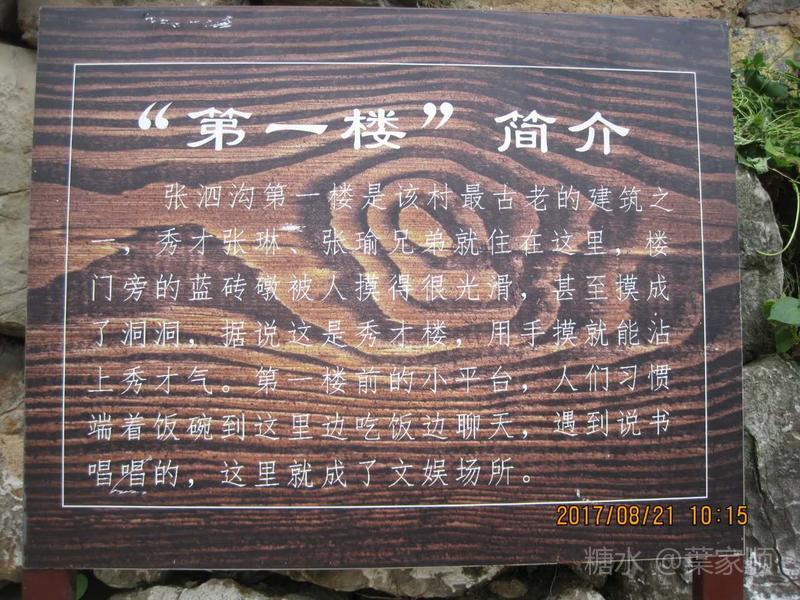 “第一楼”简介
张泗沟第一楼是该村最古老的建筑之
一，秀才张琳、张瑜兄弟就住在这里，楼
门旁的蓝砖墩被人摸得很光滑，甚至摸成
了洞洞，据说这是秀才楼，用手摸就能沾
上秀才气。第一楼前的小平台，人们习惯
端着饭碗到这里边吃饭边聊天，遇到说书
唱唱的，这里就成了文娱场所。
2017/08/21 10:15
糖水 @葉家顺